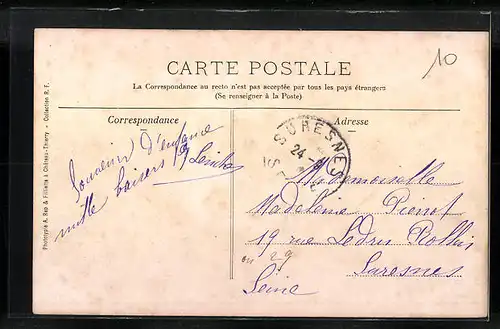 10
CARTE POSTALE
La Correspondance au recto n'est pas acceptée par tous les pays étrangers
(Se renseigner à la Poste)
Correspondance
Adresse
Souvenir D'enfance
mille baisers
SURESNES
24
SEINE
Mademoiselle
Madeleine Pierrot
19 rue Ledru Rollin
ou 29
Suresnes
Seine
Phototypie A. Rep & Filliette à Château-Thierry - Collection R. F.